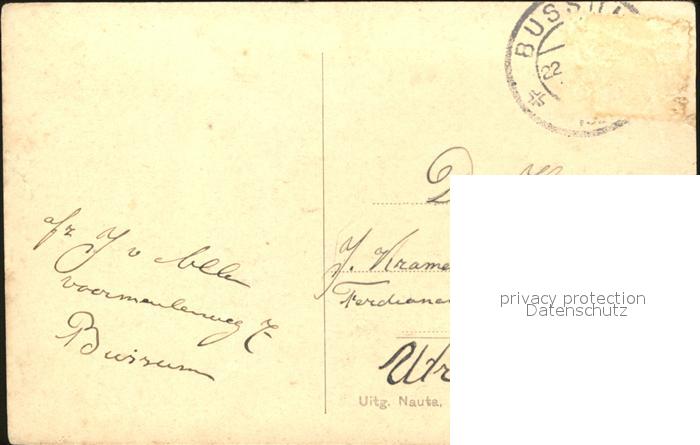 BUSSU
22
afz J v Alle
voormeulenweg 7
Bussum
D H
J. Krame
Ferdinan
Utr
Uitg. Nauta,
privacy protection
Datenschutz